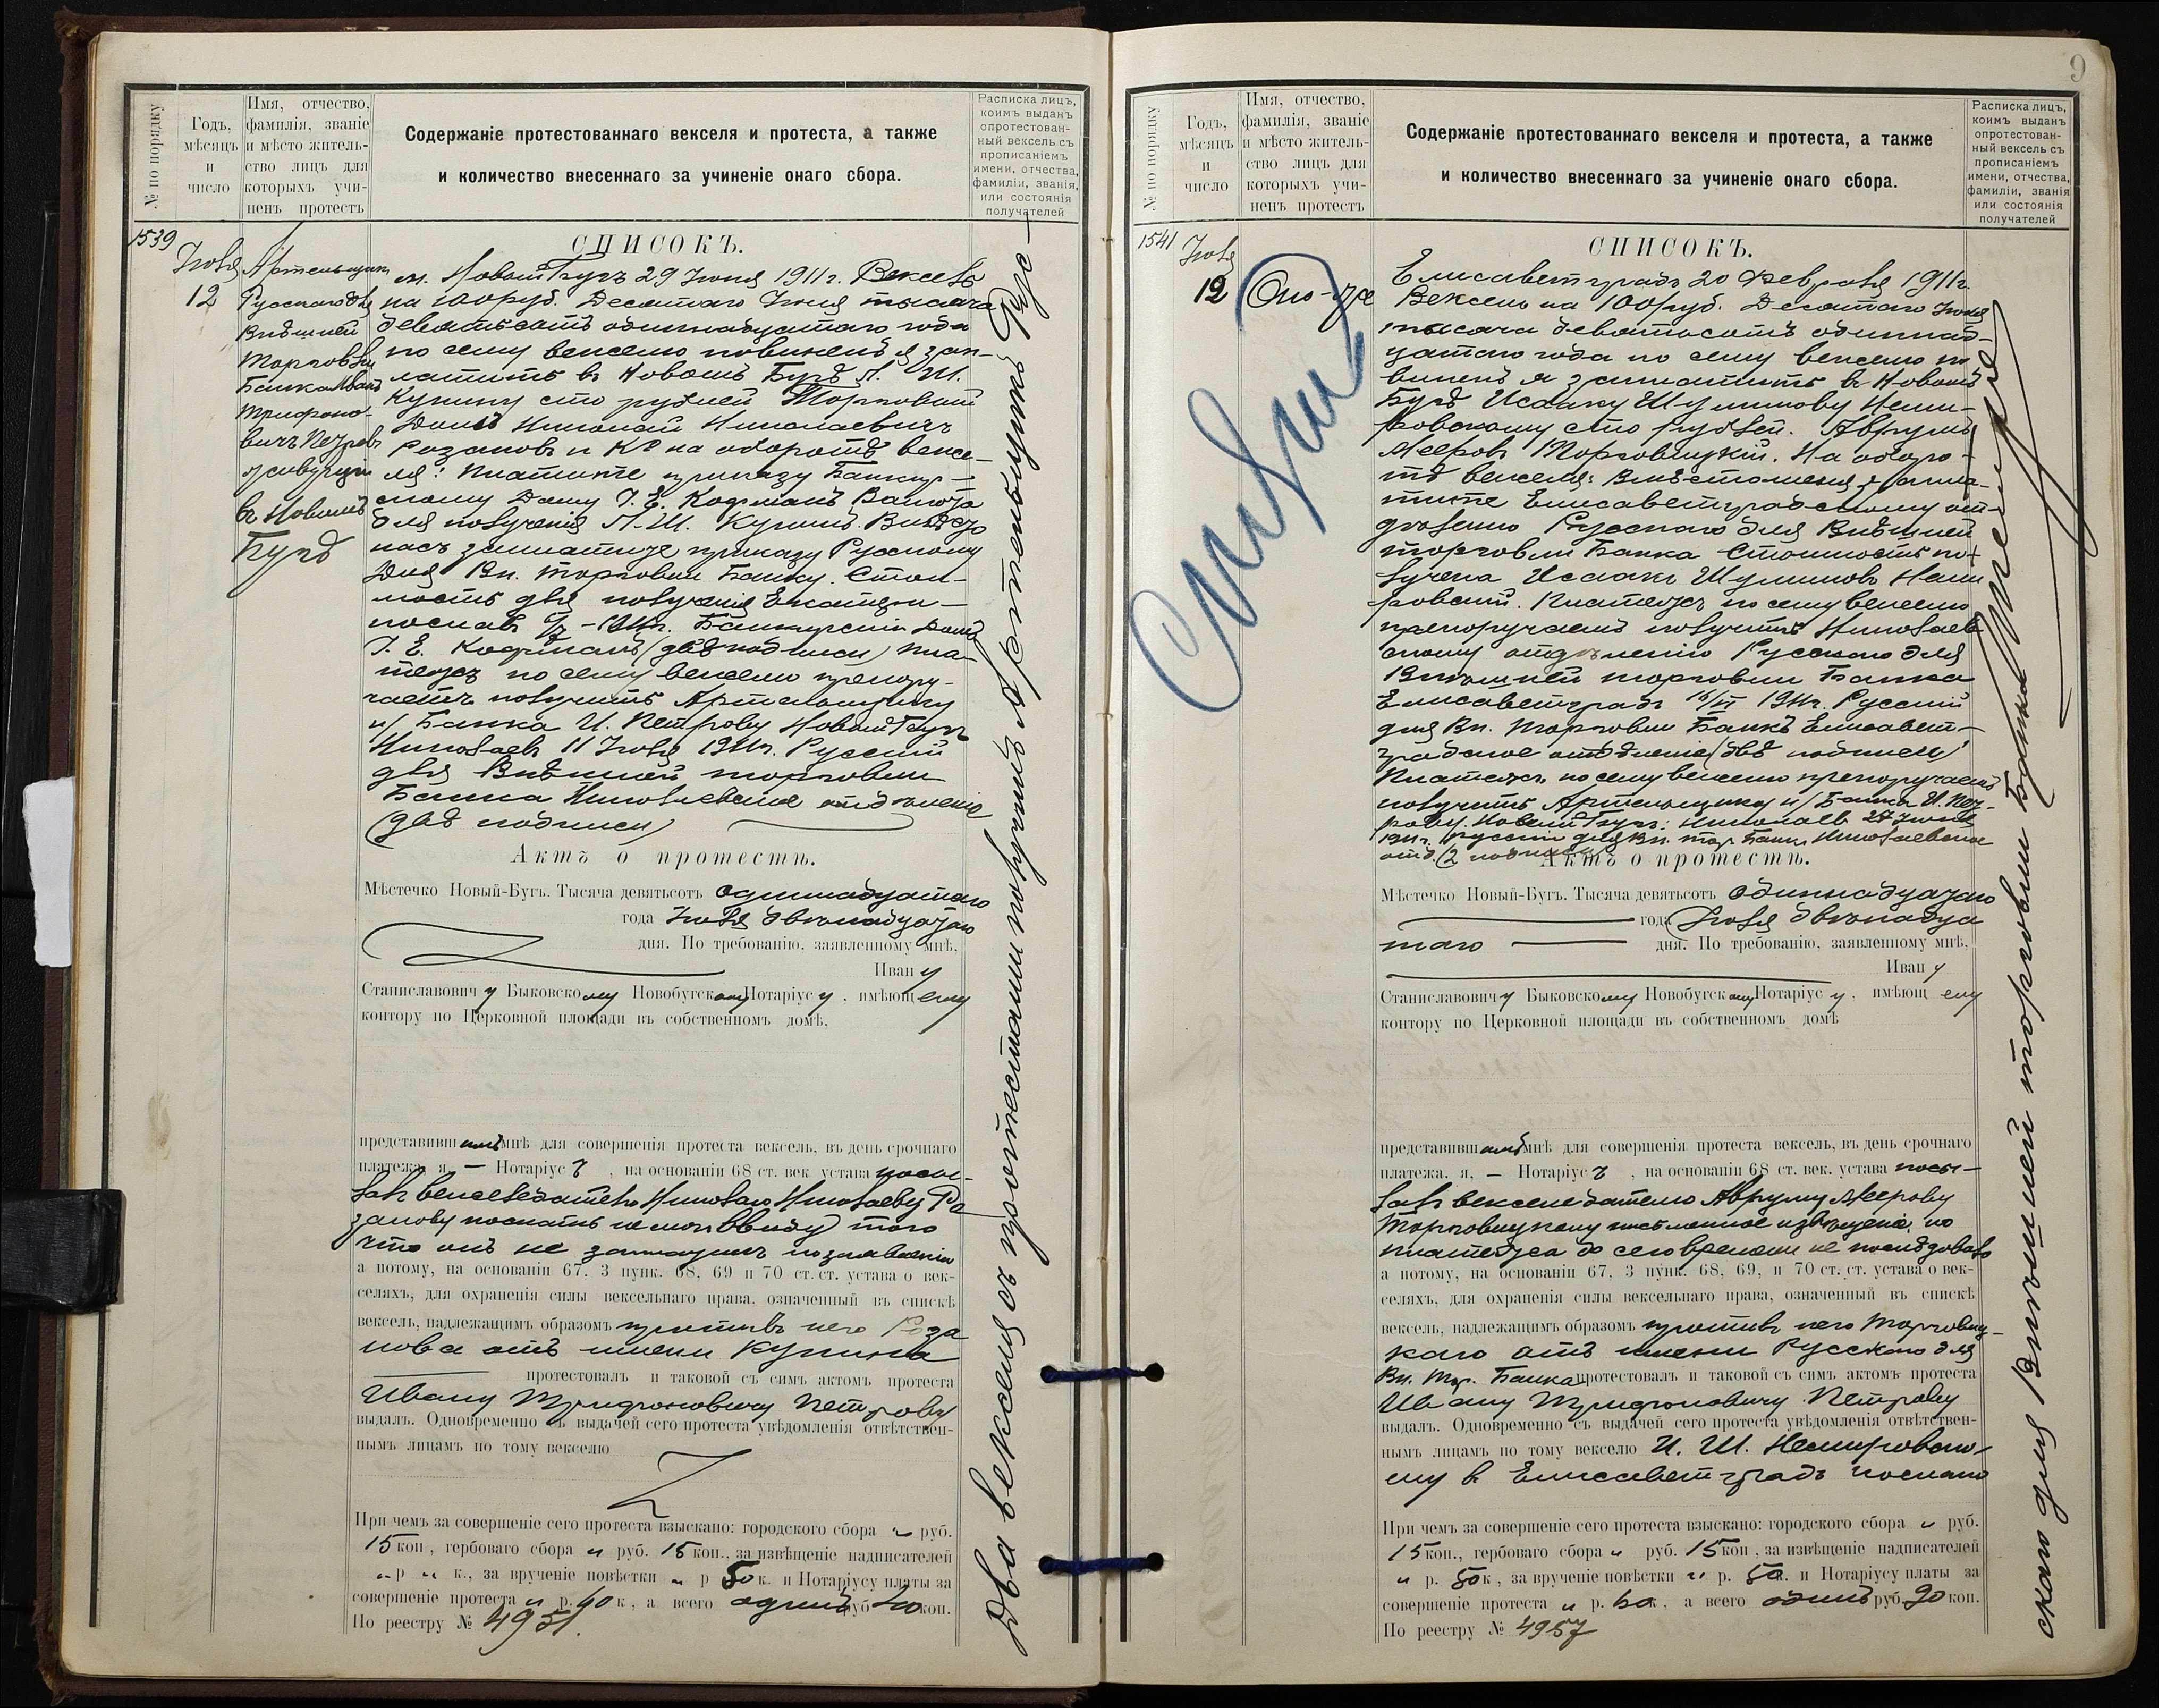 № по порядку
Годъ,
мѣсяцъ
и
число
Имя, отчество,
фамилія, званіе
и мѣсто житель-
ство лицъ для
которыхъ учи-
ненъ протестъ
Содержаніе протестованнаго векселя и протеста, а также
и количество внесеннаго за учиненіе онаго сбора.
Расписка лицъ,
коимъ выданъ
опротестован-
ный вексель съ
прописаніемъ
имени, отчества,
фамиліи, званія,
или состоянія
получателей
1539
Іюля
12
Артельщикъ
Русского для
Внѣшней
Торговли
Банка Иванъ
Трифоно-
вичъ Петровъ
въ Новомъ
Бугѣ
СПИСОКЪ.
м. Новый Бугъ 29 Іюня 1911 г. Вексель
на 100 руб. Десятаго Іюля тысяча
девятьсотъ одиннадцатаго года
по сему векселю повиненъ я зап-
латить въ Новомъ Бугѣ Л. Ш.
Купину сто рублей Торговый
Домъ Николай Николаевичъ
Розановъ и Кº на оборотѣ вексе-
ля: Платите приказу Банкир-
скому Дому І. Е. Кофманъ Валюта
для полученія Л. Ш. Купинъ. Вмѣсто
насъ заплатите приказу Русскому
для Вн. торговли Банку. Стои-
мость для полученія Екатери-
нославъ 1911 г. Банкирскій Домъ
І. Е. Кофманъ (двѣ подписи) пла-
тежъ по сему векселю препору-
чаетъ получить Артельщику
н/ Банка И. Петрову Новый Бугъ
Николаевъ 11 Іюля 1911 г. Русскій
для Внѣшней торговли
Банка Николаевское отдѣленіе
(двѣ подписи)
Актъ о протестѣ.
Мѣстечко Новый-Бугъ. Тысяча девятьсотъ одиннадцатаго
года Іюля двѣнадцатаго
дня. По требованію, заявленному мнѣ,
Ивану
Станиславовичу Быковскому Новобугскому Нотаріусу, имѣющему
контору по Церковной площади въ собственномъ домѣ,
представившимъ мнѣ для совершенія протеста вексель, въ день срочнаго
платежа, я, — Нотаріусъ, на основаніи 68 ст. век. устава посы-
лалъ векселедателю Николаю Николаеву Ро
занову послать не могъ ввиду того
что онъ не
а потому, на основаніи 67, 3 пунк. 68, 69 и 70 ст. ст. устава о век-
селяхъ, для охраненія силы вексельнаго права, означенный въ спискѣ
вексель, надлежащимъ образомъ противъ него Роза
нова отъ имени Купина
протестовалъ и таковой съ симъ актомъ протеста
Ивану Трифоновичу Петрову
выдалъ. Одновременно съ выдачей сего протеста увѣдомленія отвѣтствен-
нымъ лицамъ по тому векселю
При чемъ за совершеніе сего протеста взыскано: городского сбора „ руб.
15 коп., гербоваго сбора „ руб. 15 коп., за извѣщеніе надписателей
„ р „ к., за врученіе повѣстки „ р 50 к. и Нотаріусу платы за
совершеніе протеста „ р. 60 к., а всего одинъ руб 40 коп.
По реестру № 4951.
Два векселя съ протестами получилъ Артельщикъ Рус-
9
№ по порядку
Годъ,
мѣсяцъ
и
число
Имя, отчество,
фамилія, званіе
и мѣсто житель-
ство лицъ для
которыхъ учи-
ненъ протестъ
Содержаніе протестованнаго векселя и протеста, а также
и количество внесеннаго за учиненіе онаго сбора.
Расписка лицъ,
коимъ выданъ
опротестован-
ный вексель съ
прописаніемъ
имени, отчества,
фамиліи, званія
или состоянія
получателей
1541
Іюля
12
Оно-же
СПИСОКЪ.
Елисаветградъ 20 Февраля 1911 г.
Вексель на 100 руб. Десятаго Іюля
тысяча девятьсотъ одиннад-
цатаго года по сему векселю по
виненъ я заплатить въ Новомъ
Бугѣ Исааку Шулимову Неми-
ровскому сто рублей. Аврумъ
Мееровъ Торговицкій. На оборо-
тѣ векселя: Вмѣсто меня запла-
тите Елисаветградскому от-
дѣленію Русскаго для Внѣшней
торговли Банка Стоимость по-
лучена Исаакъ Шулимовъ Неми
ровскій. Платежъ по сему векселю
препоручаемъ получить Николаев
скому отдѣленію Русскаго для
Внѣшней торговли Банка
Елисаветградъ 16/VI 1911 г. Русскій
для Вн. торговли Банкъ Елисавет-
градское отдѣленіе (двѣ подписи)
Платежъ по сему векселю препоручаемъ
получить Артельщику н/ Банка И. Пет-
рову. Новый Бугъ: Николаевъ 27 Іюня
1911 г. Русскій для Вн. тор. Банк. Николаевское
отд. (2 подписи)
Актъ о протестѣ.
Мѣстечко Новый-Бугъ. Тысяча девятьсотъ одиннадцатаго
года Іюля двѣнадца
таго дня. По требованію, заявленному мнѣ,
Ивану
Станиславовичу Быковскому Новобугскому Нотаріусу, имѣющему
контору по Церковной площади въ собственномъ домѣ
представившимъ мнѣ для совершенія протеста вексель, въ день срочнаго
платежа, я, — Нотаріусъ, на основаніи 68 ст. век. устава посы-
лалъ векселедателю Авруму Меерову
Торговицкому письменное извѣщеніе, но
платежа до сего времени не послѣдовало
а потому, на основаніи 67, 3 пунк. 68, 69, и 70 ст. ст. устава о век-
селяхъ, для охраненія силы вексельнаго права, означенный въ спискѣ
вексель, надлежащимъ образомъ противъ него Торговиц-
каго отъ имени Русскаго для
Вн. Тор. Банка протестовалъ и таковой съ симъ актомъ протеста
Ивану Трифоновичу Петрову
выдалъ. Одновременно съ выдачей сего протеста увѣдомленія отвѣтствен-
нымъ лицамъ по тому векселю И. Ш. Немировско-
му въ Елисаветградъ послано
При чемъ за совершеніе сего протеста взыскано: городского сбора „ руб.
15 коп., гербоваго сбора „ руб. 15 коп., за извѣщеніе надписателей
„ р. 50 к., за врученіе повѣстки „ р. 50 к. и Нотаріусу платы за
совершеніе протеста „ р. 60 к., а всего одинъ руб. 90 коп.
По реестру № 4957
скаго для Внѣшней торговли Банка